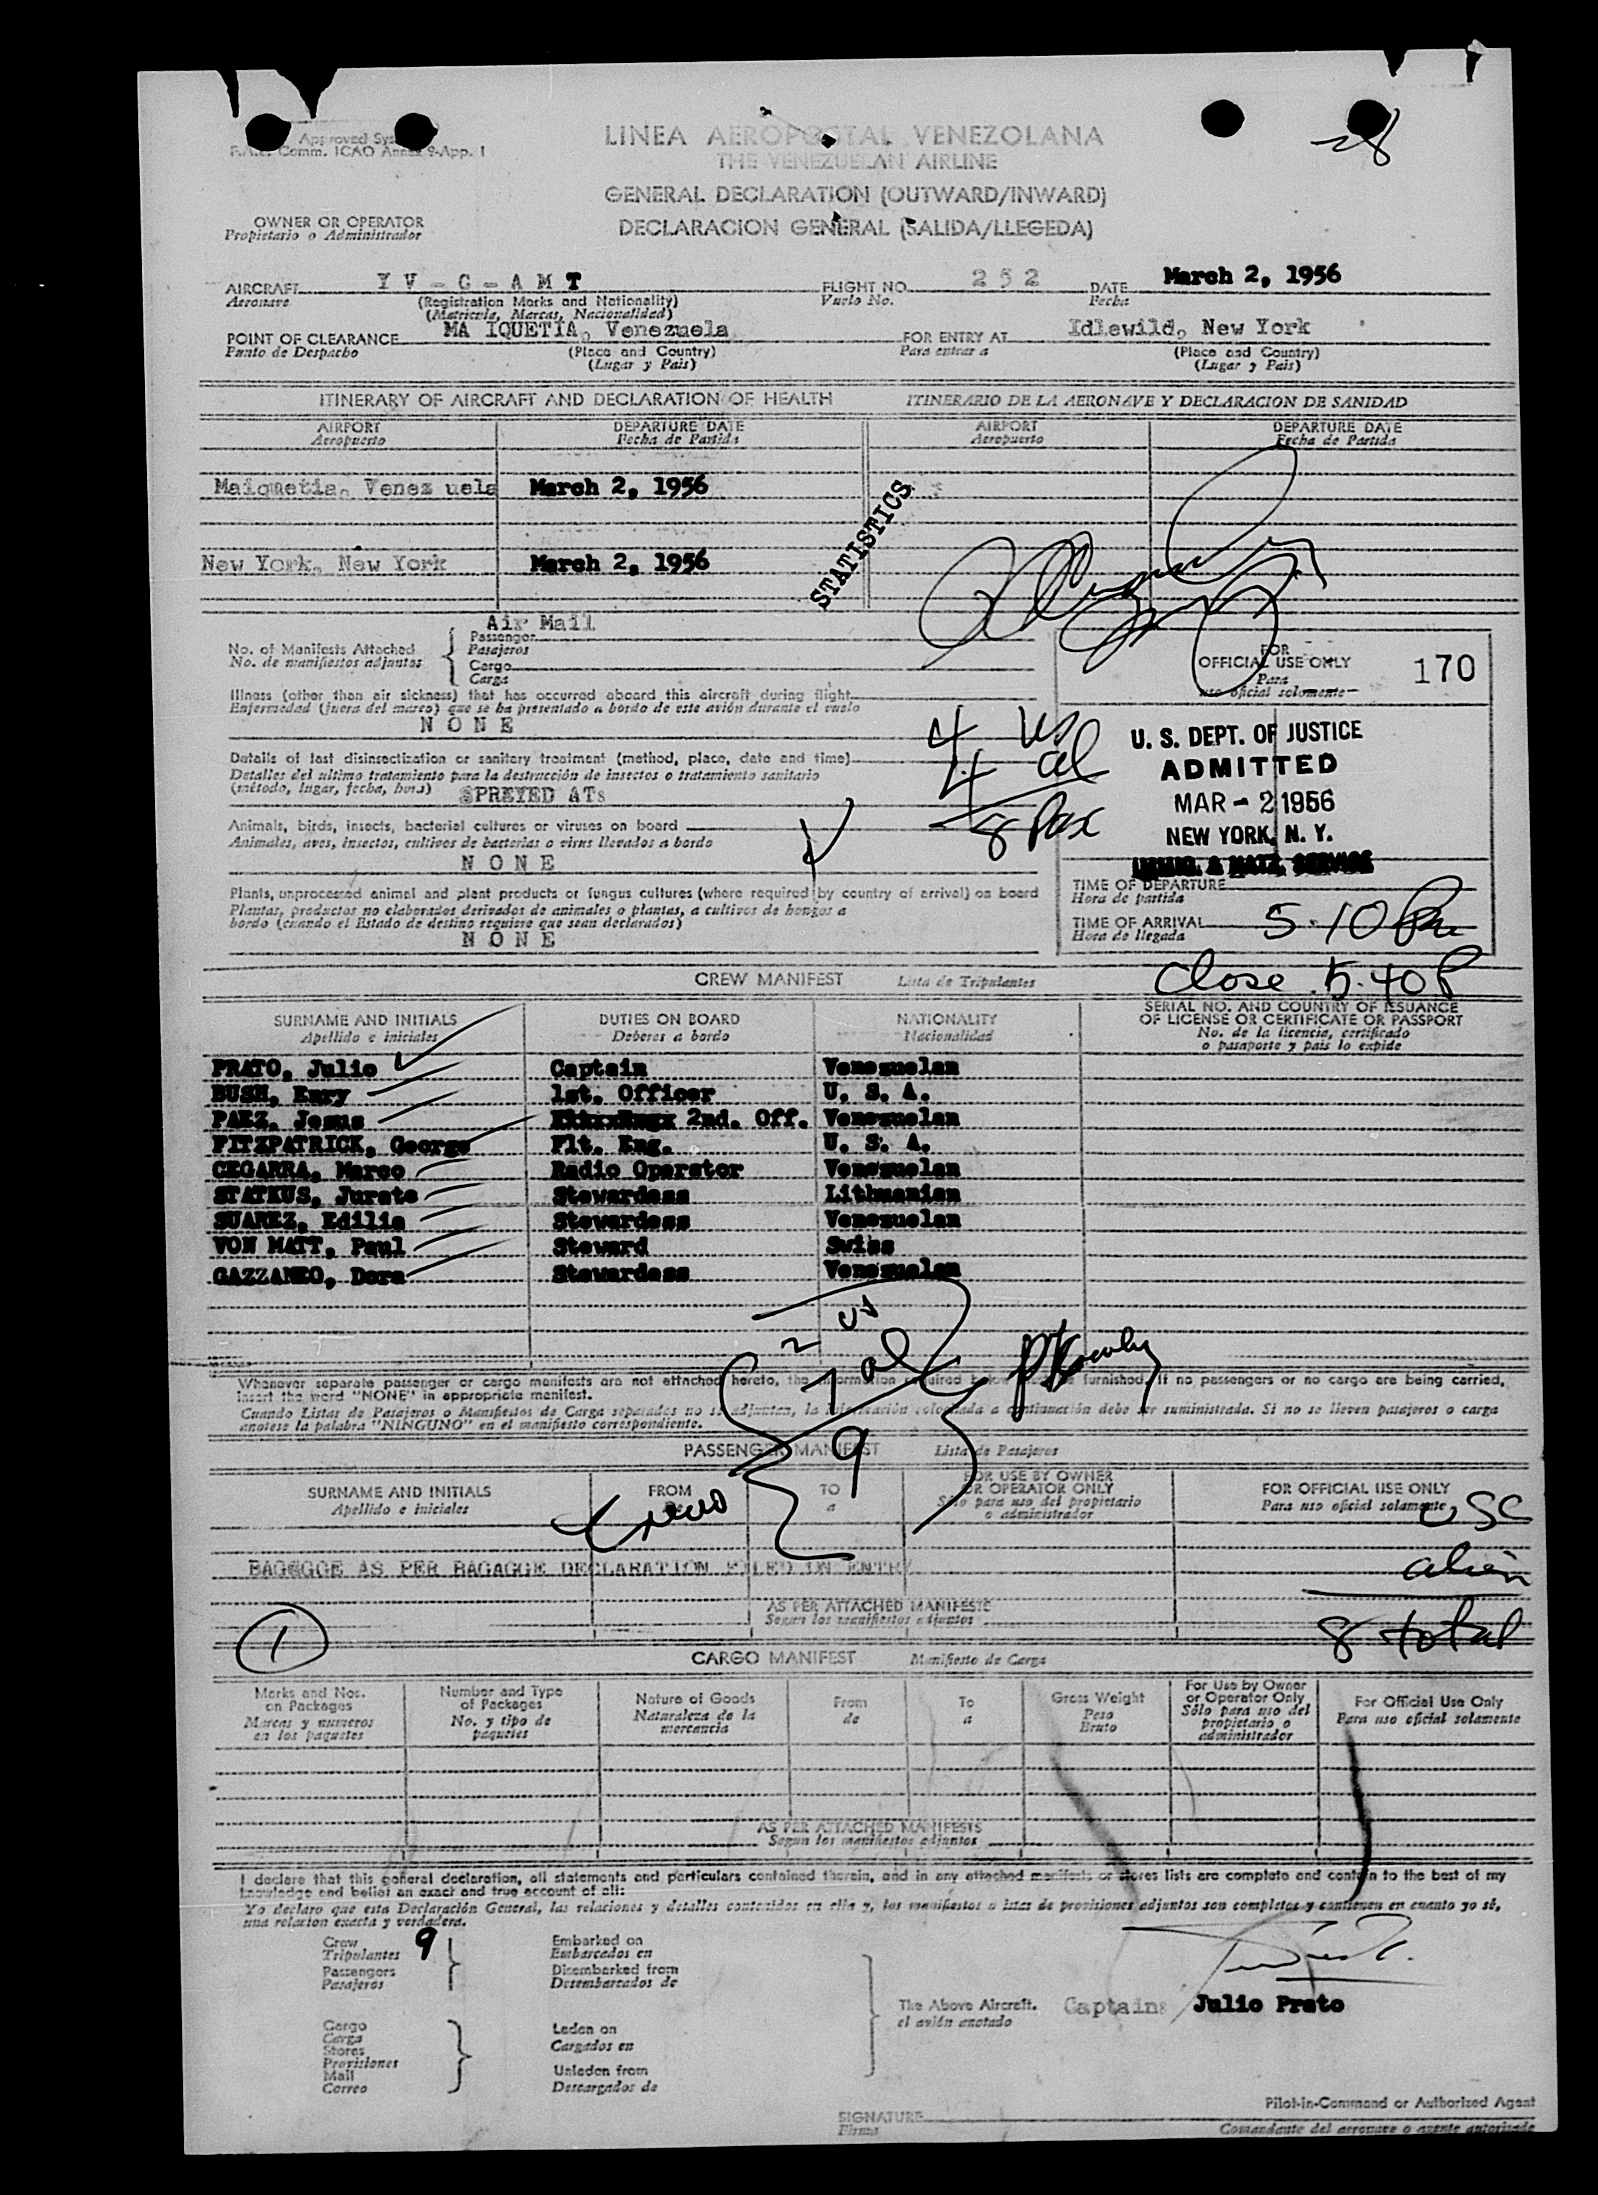 28
Approved Sys
Comm. ICAO Annex 9-App. 1
LINEA AEROPOSTAL VENEZOLANA
THE VENEZUELAN AIRLINE
GENERAL DECLARATION (OUTWARD/INWARD)
DECLARACION GENERAL (SALIDA/LLEGEDA)
OWNER OR OPERATOR
Propietario o Administrador
AIRCRAFT Y V - C - A M T FLIGHT NO. 2 5 2 DATE March 2, 1956
Aeronave (Registration Marks and Nationality) Vuelo No. Fecha
(Matricula, Marcas, Nacionalidad)
POINT OF CLEARANCE MA IQUETIA, Venezuela FOR ENTRY AT Idlewild, New York
Punto de Despacho (Place and Country) Para entrar a (Place and Country)
(Lugar y Pais) (Lugar y Pais)
ITINERARY OF AIRCRAFT AND DECLARATION OF HEALTH ITINERARIO DE LA AERONAVE Y DECLARACION DE SANIDAD
AIRPORT DEPARTURE DATE AIRPORT DEPARTURE DATE
Aeropuerto Fecha de Partida Aeropuerto Fecha de Partida
Maiquetia, Venez uela March 2, 1956
STATISTICS
New York, New York March 2, 1956
Air Mail
No. of Manifests Attached Passenger
No. de manifiestos adjuntos Pasajeros
Cargo
Carga
FOR
OFFICIAL USE ONLY 170
Para
uso oficial solamente
Illness (other than air sickness) that has occurred aboard this aircraft during flight
Enfermedad (fuera del mareo) que se ha presentado a bordo de este avión durante el vuelo
N O N E
4 us
4 al
8 Pax
U. S. DEPT. OF JUSTICE
ADMITTED
MAR - 2 1956
NEW YORK, N. Y.
IMMIG. & NATZ. SERVICE
Details of last disinsectization or sanitary treatment (method, place, date and time)
Detalles del ultimo tratamiento para la destrucción de insectos o tratamiento sanitario
(método, lugar, fecha, hora) SPREYED AT:
Animals, birds, insects, bacterial cultures or viruses on board
Animales, aves, insectos, cultivos de bacterias o virus llevados a bordo
N O N E
Plants, unprocessed animal and plant products or fungus cultures (where required by country of arrival) on board
Plantas, productos no elaborados derivados de animales o plantas, a cultivos de hongos a
bordo (cuando el Estado de destino requiere que sean declarados)
N O N E
TIME OF DEPARTURE
Hora de partida
TIME OF ARRIVAL 5-10 Pm
Hora de llegada
Close 5.40 P
CREW MANIFEST Lista de Tripulantes
SURNAME AND INITIALS DUTIES ON BOARD NATIONALITY SERIAL NO. AND COUNTRY OF ISSUANCE
OF LICENSE OR CERTIFICATE OR PASSPORT
Apellido e iniciales Deberes a bordo Nacionalidad No. de la licencia, certificado
o pasaporte y pais lo expide
PRATO, Julio Captain Venezuelan
BUSH, Enry 1st. Officer U. S. A.
PAEZ, Jesus 2nd. Off. Venezuelan
FITZPATRICK, George Flt. Eng. U. S. A.
CEGARRA, Marco Radio Operator Venezuelan
STATKUS, Jurate Stewardess Lithuanian
SUAREZ, Edilia Stewardess Venezuelan
VON MATT, Paul Steward Swiss
GAZZANEO, Dora Stewardess Venezuelan
2 us
7 al
9
Whenever separate passenger or cargo manifests are not attached hereto, the information required below must be furnished. If no passengers or no cargo are being carried,
insert the word "NONE" in appropriate manifest.
Cuando Listas de Pasajeros o Manifiestos de Carga separados no se adjuntan, la información colocada a continuación debe ser suministrada. Si no se lleven pasajeros o carga
anotese la palabra "NINGUNO" en el manifiesto correspondiente.
PASSENGER MANIFEST Lista de Pasajeros
SURNAME AND INITIALS FROM TO FOR USE BY OWNER
OR OPERATOR ONLY FOR OFFICIAL USE ONLY
Apellido e iniciales a Sólo para uso del propietario
o administrador Para uso oficial solamente
Crew
USC
alien
8 total
BAGEGGE AS PER BAGAGGE DECLARATION FILED ON ENTRY
AS PER ATTACHED MANIFESTS
Segun los manifiestos adjuntos
1
CARGO MANIFEST Manifiesto de Carga
Marks and Nos.
on Packages
Marcas y numeros
en los paquetes
Number and Type
of Packages
No. y tipo de
paquetes
Nature of Goods
Naturaleza de la
mercancia
From
de
To
a
Gross Weight
Peso
Bruto
For Use by Owner
or Operator Only
Sólo para uso del
propietario o
administrador
For Official Use Only
Para uso oficial solamente
AS PER ATTACHED MANIFESTS
Segun los manifiestos adjuntos
I declare that this general declaration, all statements and particulars contained therein, and in any attached manifests or stores lists are complete and contain to the best of my
knowledge and belief an exact and true account of all:
Yo declaro que esta Declaración General, las relaciones y detalles contenidos en ella y, los manifiestos o listas de provisiones adjuntos son completos y contienen en cuanto yo sé,
una relacion exacta y verdadera.
Crew 9
Tripulantes
Passengers
Pasajeros
Embarked on
Embarcados en
Disembarked from
Desembarcados de
The Above Aircraft.
el avión anotado
Captain: Julio Prato
Cargo
Carga
Stores
Provisiones
Mail
Correo
Laden on
Cargados en
Unladen from
Descargados de
Pilot-in-Command or Authorized Agent
SIGNATURE
Firma
Comandante del aeronave o agente autorizado